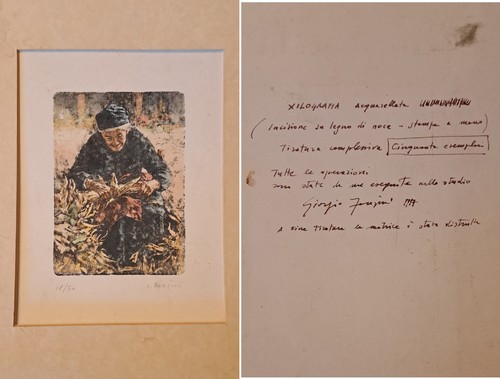 18/50
XILOGRAFIA acquarellata
(Incisione su legno di noce - stampa a mano)
Tiratura complessiva Cinquanta esemplari
Tutte le operazioni
sono state da me eseguite nello studio
Giorgio
A fine tiratura la matrice è stata distrutta